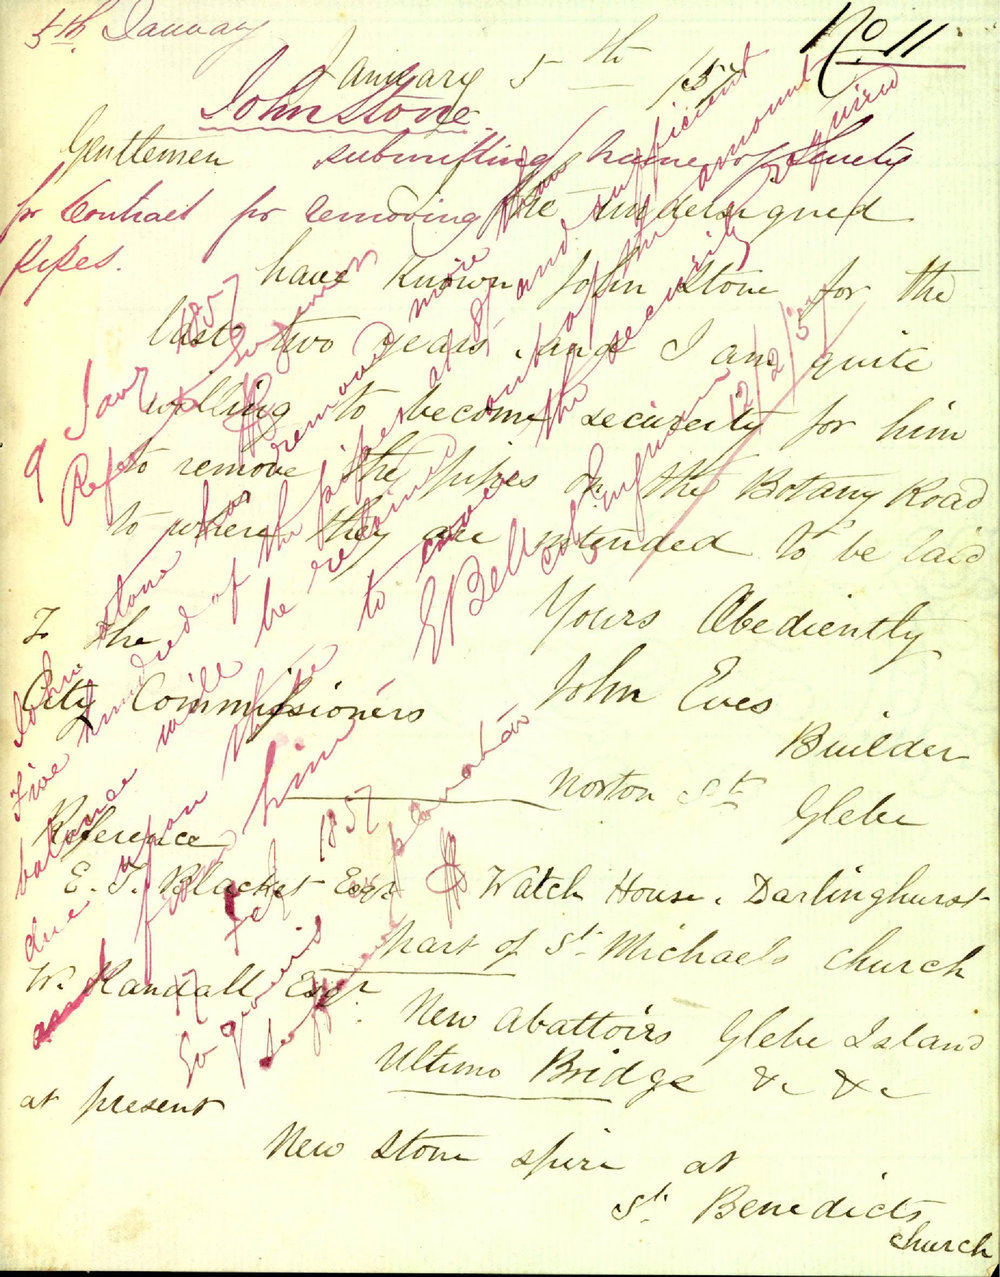 No 11
5th January
January 5th /57
John Stone
Gentlemen
submitting name of Surety
for Contract for removing
pipes.
the undersigned
have known John Stone for the
last two years, and I am quite
willing to become security for him
to remove the pipes on the Botany Road
to where they are intended to be laid
Yours Obediently
John Eves
Builder
Norton St Glebe
To the
City Commissioners
Reference
E. T. Blacket Esqr Watch House, Darlinghurst
part of St Michaels church
W. Randall Esqr
New Abattoirs Glebe Island
Ultimo Bridge &c &c
at present
New Stone spire at
St Benedicts
church
9 Jany 1857
Refer
John Stone has removed more than
Five hundred of the pipes and sufficient
balance will be retained out of the amount
due upon the to cover the security required
and from him
E Bell City Engineer 12/2/57
17 Feb 1857